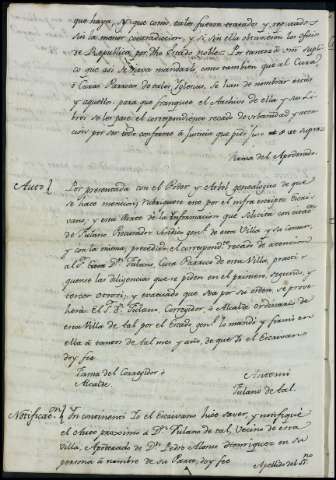 que haya, y que como tales fueron tratados, y reputados
sin la menor contradiccion, y si en ella obtuvieron los oficios
de Republica por Dho Estado noble: Por tanto à vm suplico
co que asi se sirva mandarlo, como tambien que al Cura,
ò Curas Parrocos de tales Iglesias, se han de nombrar estas
y aquellos, para que franqueen el Archivo de ella y sus Libros
se les pase el correspondiente recado de urbanidad y atencion
por ser todo conforme à Justicia que pido
Firma del Apoderado.
Auto
Por presentada con el Poder y Arbol genealogico de que
se hace mencion; y dandose una por el infrascripto Escrivano,
y esta Parte de la Informacion que solicita con citacion
de Fulano Procurador Sindico genl. de esta Villa y su comun,
y con la misma, precedido el correspondte. recado de atencion
al P. Cura Dn. Fulano, Cura Parroco de esta Villa, practiquense
las diligencias que se piden en el primero, segundo, y
tercer otrosi; y evacuado que sea por su orden, se proveherá.
El Sr. Dn. Fulano, Corregidor, ò Alcalde ordinario de
esta Villa de tal por el Estado genl. lo mandó y firmó en
ella à tantos de tal mes y año, de que Yo el Escrivano
doy fee
Firma del Corregidor ò
Alcalde
Antemi
Fulano de tal.
Notificacn.
En continenti Yo el Escrivano hice saver, y notifiqué
el Auto proximo à Dn. Fulano de tal, Vecino de esta
villa, Apoderado de Dn. Pedro Alonso Henriquez en su
persona à nombre de su Parte, doy fee
Apellido del Sno.